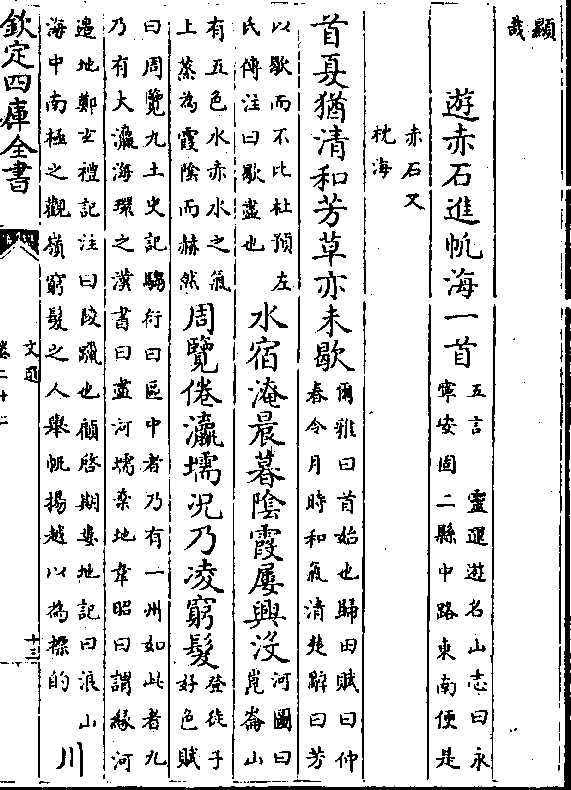 顯
哉
遊赤石進帆海一首
五言 靈運遊名山志曰永
寧安固二縣中路東南便是
赤石又
枕海
首夏猶清和芳草亦未歇
爾雅曰首始也歸田賦曰仲
春令月時和氣清楚辭曰芳
以歇而不比杜預左
氏傳注曰歇盡也
水宿淹晨暮陰霞屢興没
河圖曰
崑崙山
有五色水赤水之氣
上蒸為霞陰而赫然
周覽倦瀛壖况乃凌窮髮
登徒子
好色賦
曰周覽九土史記騶衍曰區中者乃有一州如此者九
乃有大瀛海環之漢書曰盡河壖棄地韋昭曰謂緣河
邉地鄭玄禮記注曰陵躐也顧啓期婁地記曰浪山
海中南極之觀嶺窮髮之人舉帆揚越以為標的
川
欽定四庫全書
文選
卷二十二
十三